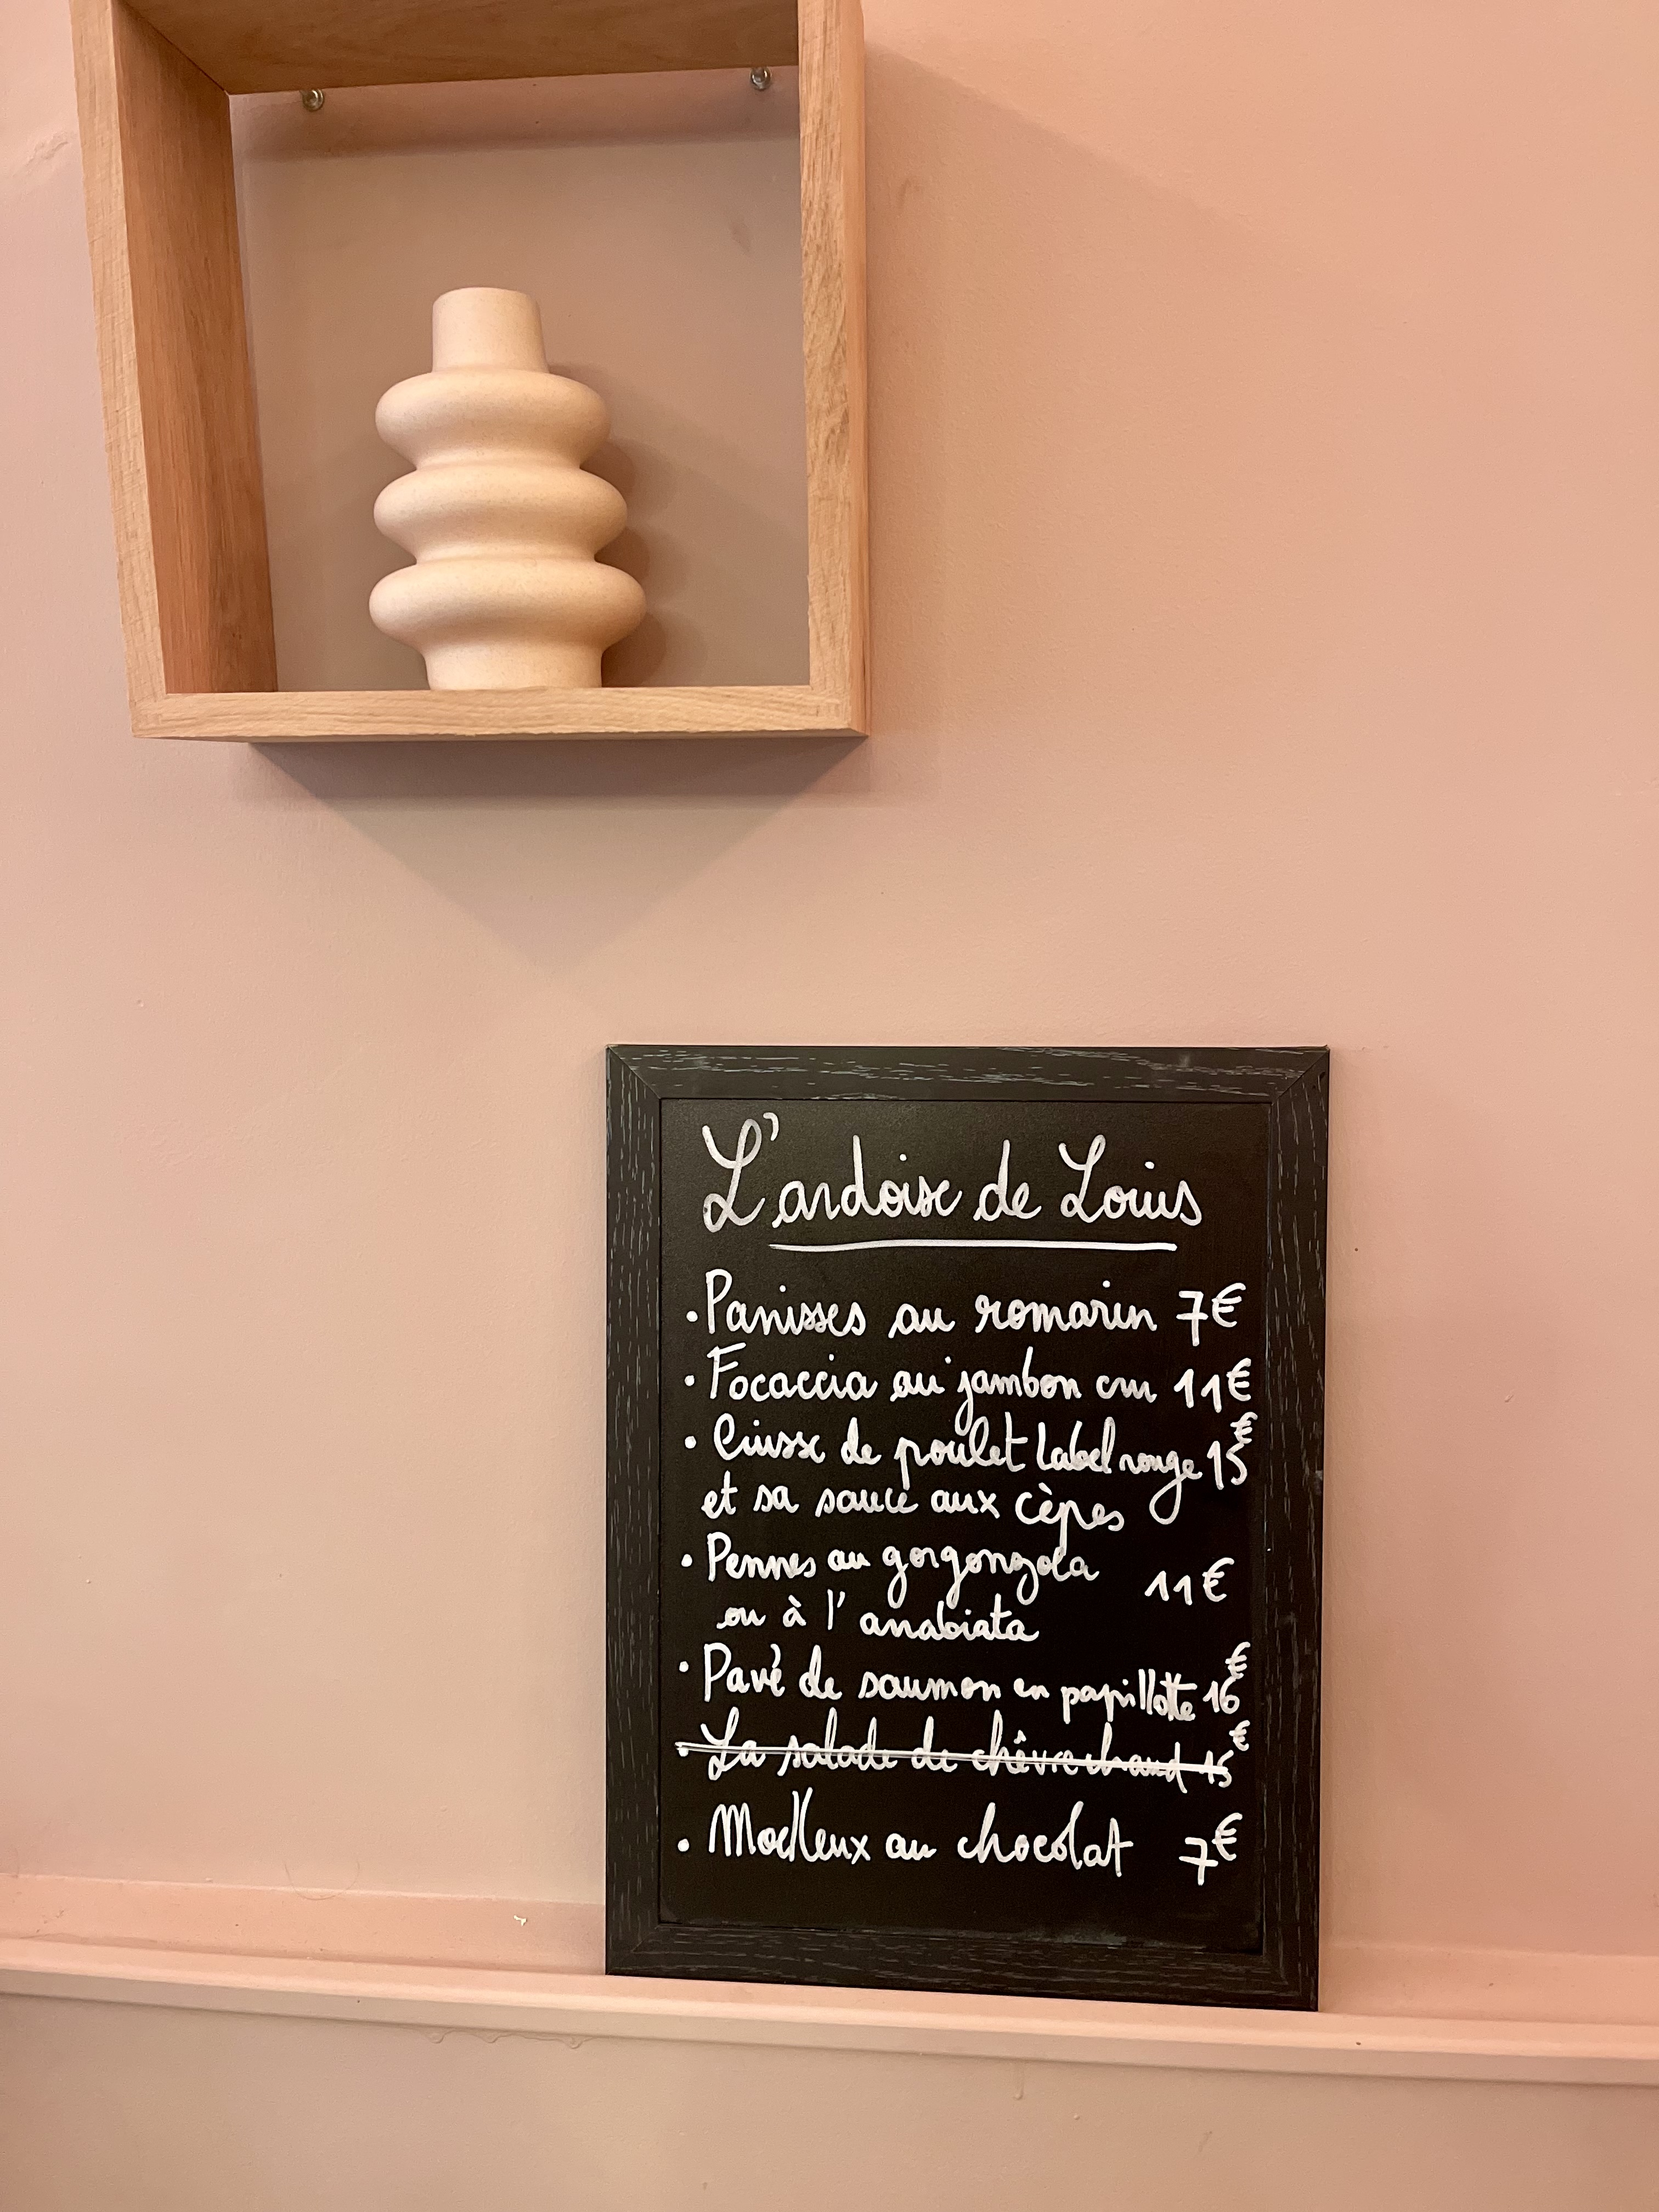 L'ardoise de Louis
• Panisses au romarin 7€
• Focaccia au jambon cru 11€
• Cuisse de poulet Label rouge 15€
et sa sauce aux cèpes
• Pennes au gorgonzola 11€
ou à l'arrabiata
• Pavé de saumon en papillotte 16€
• La salade de chêvre chaud 15€
• Moelleux au chocolat 7€